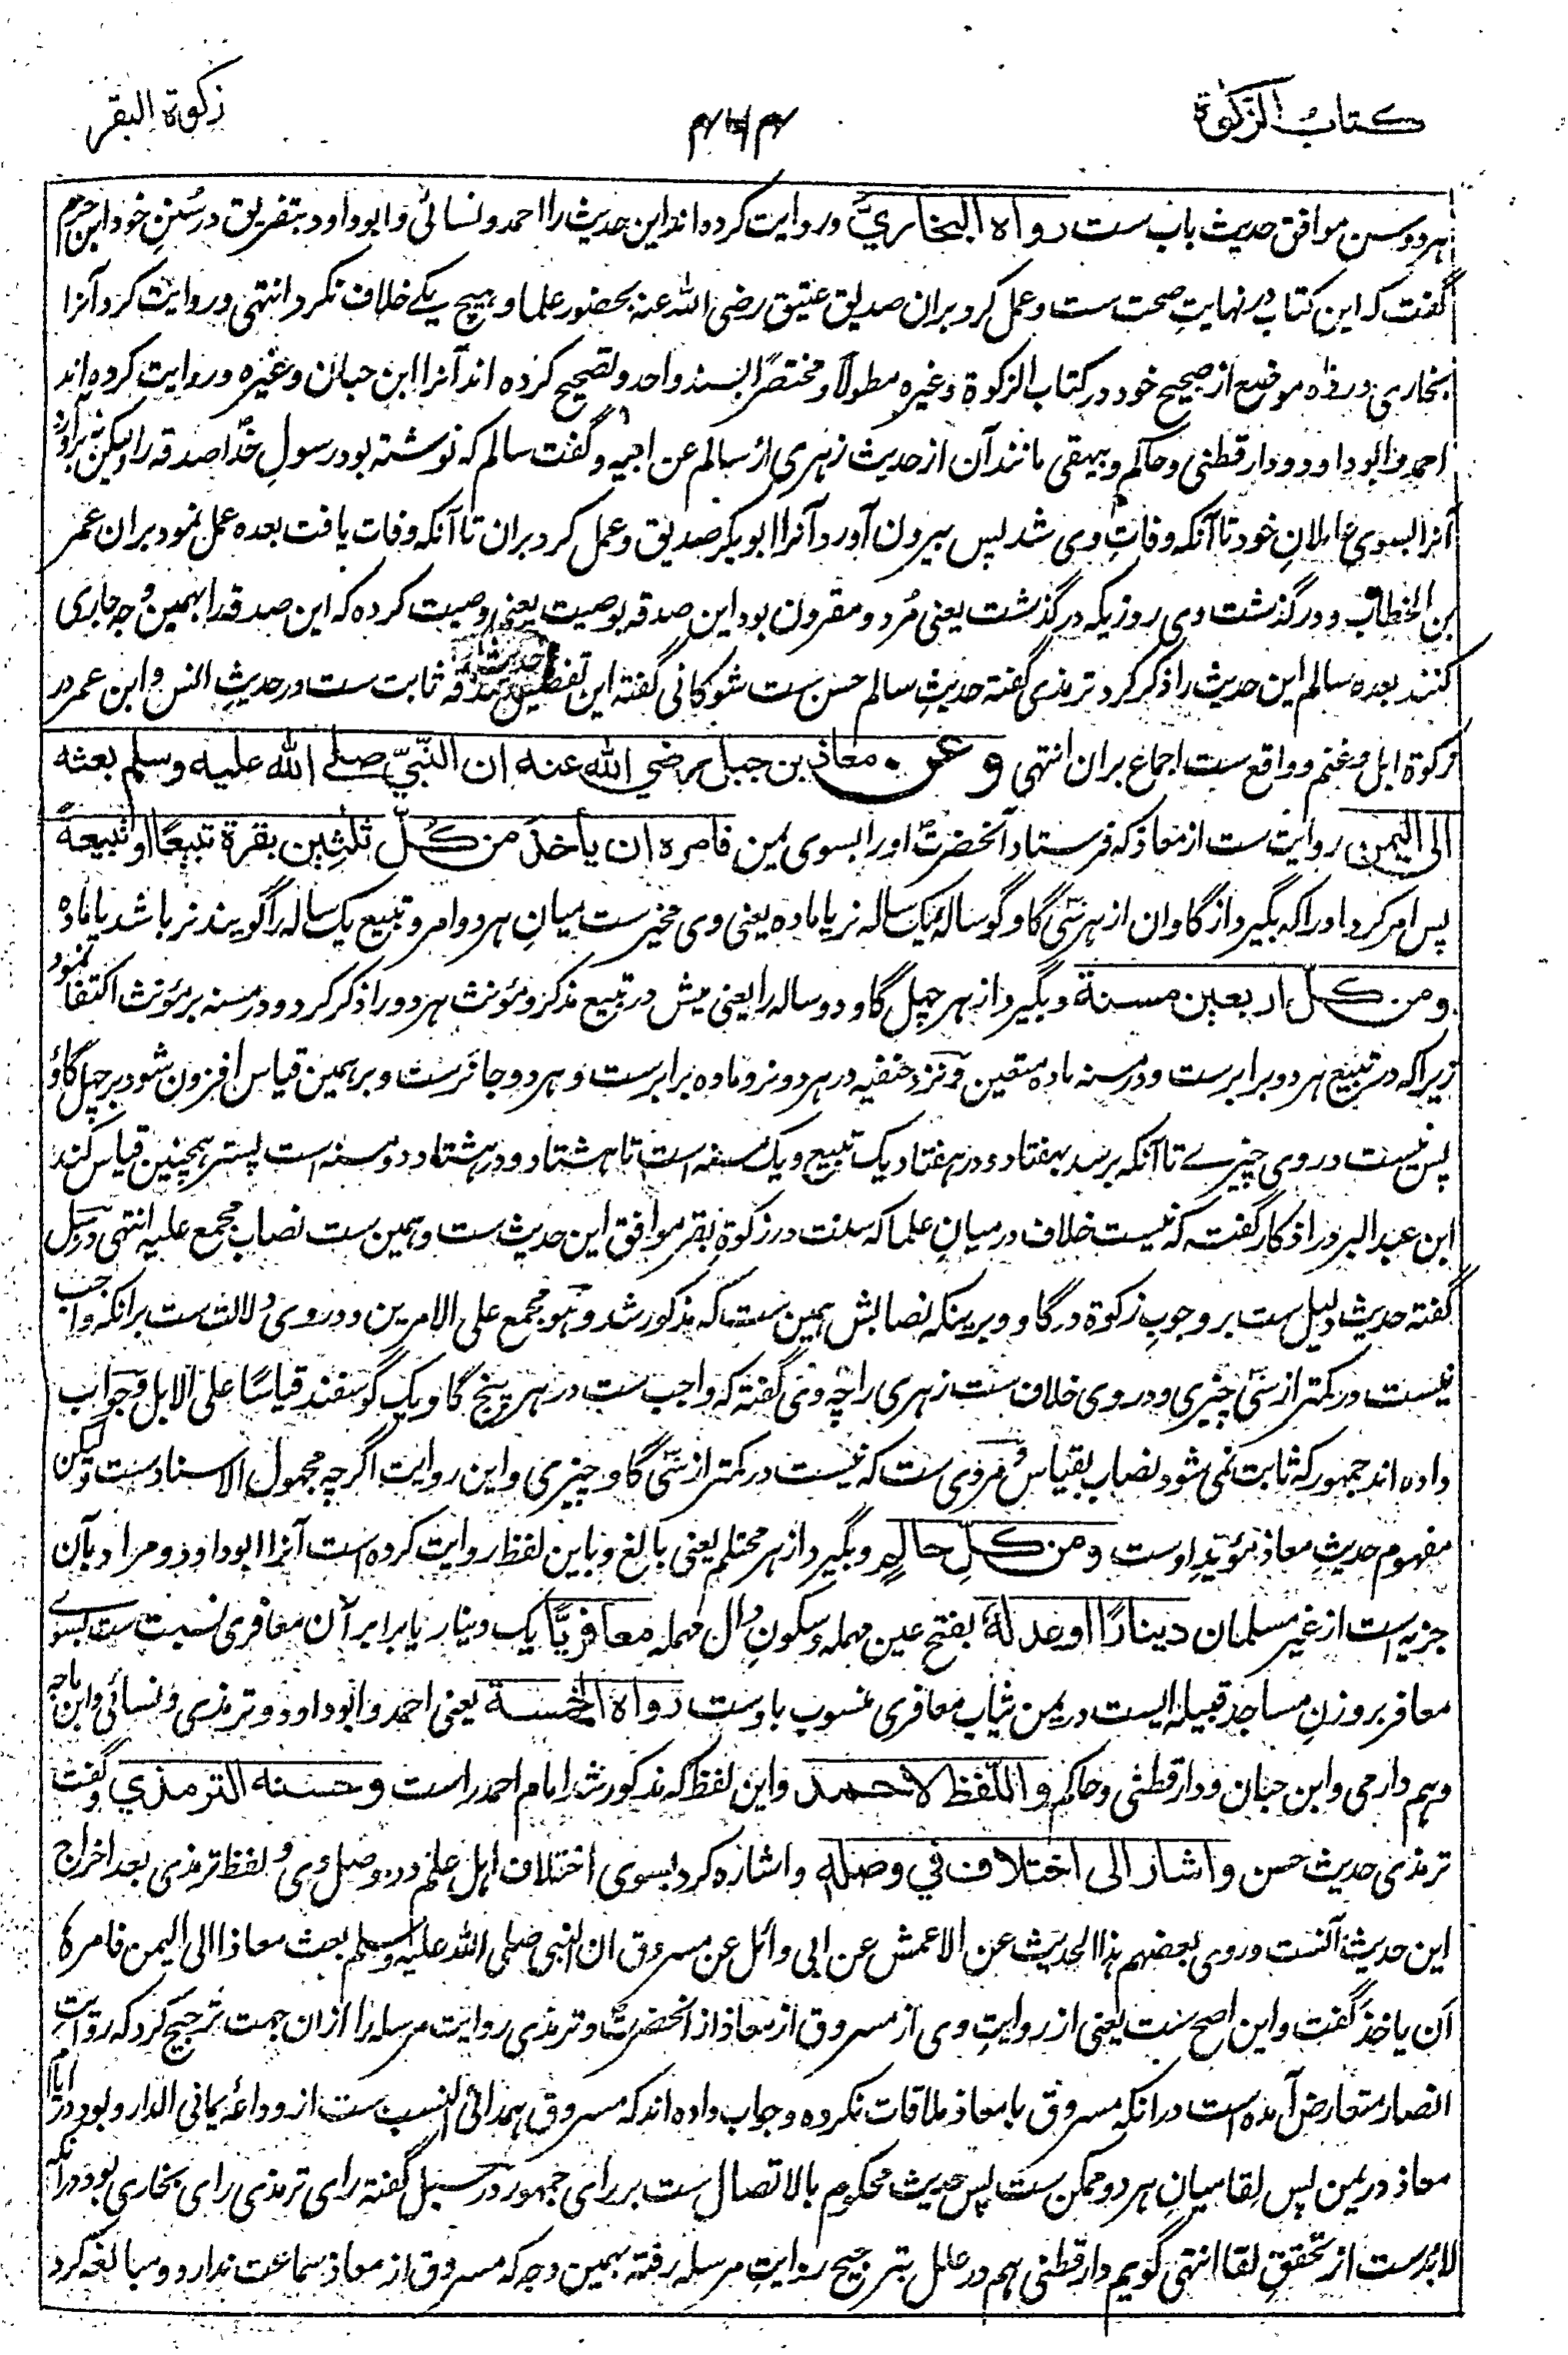 کتاب الزکوٰة
زکوة البقر
هر دو سن موافق حدیث باب ست رواه البخاريُّ وروایت کرده اند این حدیث را احمد ونسائی وابوداود بتفریق در سُننِ خود ابن حزم
گفت که این کتاب در نهایتِ صحت ست وعمل کرد بران صدیق عتیق رضی الله عنه بحضور علما وهیچ یکے خلاف نکرد انتهی وروایت کرد آنرا
بخاری در ده موضع از صحیح خود در کتاب الزکوة وغیره مطولًا ومختصرًا بسند واحد وتصحیح کرده اند آنرا ابن حبان وغیره وروایت کرده اند
احمد وابوداود ودارقطنی وحاکم وبیهقی مانند آن از حدیث زهری از سالم عن ابیه وگفت سالم که نوشته بود رسولِ خدا صدقه را ولیکن نه برآورد
آنرا بسوی عاملانِ خود تا آنکه وفاتِ وی شد پس بیرون آورد آنرا ابوبکر صدیق وعمل کرد بران تا آنکه وفات یافت بعده عمل نمود بران عمر
بن الخطاب ودرگذشت وی روزیکه درگذشت یعنی مُرد ومقرون بود این صدقه بوصیت یعنی وصیت کرده که این صدقه را بهمین وجه جاری
کنند بعده سالم این حدیث را ذکر کرد ترمذی گفته حدیثِ سالم حسن ست شوکانی گفته این صدقه ثابت ست در حدیثِ انس وابن عمر در
زکوة ابل وغنم وواقع ست اجماع بران انتهی وعن معاذ بن جبل رضي الله عنه ان النّبيّ صلے الله علیه وسلم بعثه
الی الیمن روایت ست از معاذ که فرستاد آنحضرتؐ او را بسوی یمن فامره ان یأخذ من کُلّ ثلٰثین بقرة تبیعًا او تبیعةً
پس امر کرد او را که بگیرد از گاوان از هر سَی گاو گوساله یک ساله نر یا ماده یعنی وی مخیر ست میانِ هر دو امر وتبیع یک ساله را گویند نر باشد یا ماده
ومن کل اربعین مسنة وبگیرد از هر چهل گاو دو ساله را یعنی میش در تبیع مذکر ومؤنث هر دو را ذکر کرد ودر مسنه بر مؤنث اکتفا نمود
زیرا که در تبیع هر دو برابرست ودر مسنه ماده متعین ونزد حنفیه در هر دو نر وماده برابرست وهر دو جائزست وبر همین قیاس افزون شود بر چهل گاؤ
پس نیست در وی چیزے تا آنکه برسد بهفتاد ودر هفتاد یک تبیع ویک مسنه است تا هشتاد ودر هشتاد دو مسنه است پستر همچنین قیاس کنند
ابن عبد البر در اذکار گفته که نیست خلاف درمیانِ علما که سنت در زکوةِ بقر موافق این حدیث ست وهمین ست نصاب مجمع علیه انتهی ودر سبل
گفته حدیث دلیل ست بر وجوبِ زکوة در گاو وبرینکه نصابش همین ست که مذکور شد وهو مجمع علی الامرین ودر وی دلالت ست برانکه واجب
نیست در کمتر از سَی چیزی ودر وی خلاف ست زهری را چه وی گفته که واجب ست در هر پنج گاو یک گوسفند قیاسًا علی الابل وجواب
داده اند جمهور که ثابت نمی شود نصاب بقیاس ومروی ست که نیست در کمتر از سَی گاو چیزی واین روایت اگرچه مجهول الاسناد ست ولیکن
مفهوم حدیثِ معاذ مؤیدِ اوست ومن کلِ حالمٍ وبگیرد از هر محتلم یعنی بالغ وباین لفظ روایت کرده است آنرا ابوداود ومراد بآن
جزیه است از غیر مسلمان دینارًا او عدلهٗ بفتح عین مهمله وسکونِ دال مهمله معافریًّا یک دینار یا برابر آن معافری نسبت ست بسوے
معافر بروزنِ مساجد قبیله ایست در یمن ثیاب معافری منسوب باوست رواه الخمسة یعنی احمد وابوداود وترمذی ونسائی وابن ماجه
وهم دارمی وابن حبان ودارقطنی وحاکم واللفظ لاحمد واین لفظ که مذکور شد امام احمد راست وحسنه الترمذي وگفت
ترمذی حدیث حسن واشار الی اختلاف في وصله واشاره کرد بسوی اختلاف اهل علم در وصل وی ولفظ ترمذی بعد اخراج
این حدیث آنست وروی بعضهم هذا الحدیث عن الاعمش عن ابی وائل عن مسروق ان النبی صلی الله علیه وسلم بعث معاذا الی الیمن فامره
أن یاخذ گفت واین اصح ست یعنی از روایتِ وی از مسروق از معاذ از آنحضرتؐ وترمذی روایت مرسله را ازان جهت ترجیح کرد که روایت
اتصار متعارض آمده است درانکه مسروق با معاذ ملاقات نکرده وجواب داده اند که مسروق همدانی النسب ست از وداعهٔ یمانی الدار وبود در ایام
معاذ در یمن پس لقا میانِ هر دو ممکن ست پس حدیث محکوم بالاتصال ست بر رای جمهور در سبل گفته رای ترمذی رای بخاری بود درانکه
لابدست از تحققِ لقا انتهی گویم دارقطنی هم در علل بترجیح روایتِ مرسله رفته بهمین وجه که مسروق از معاذ سماعت ندارد ومبالغه کرد